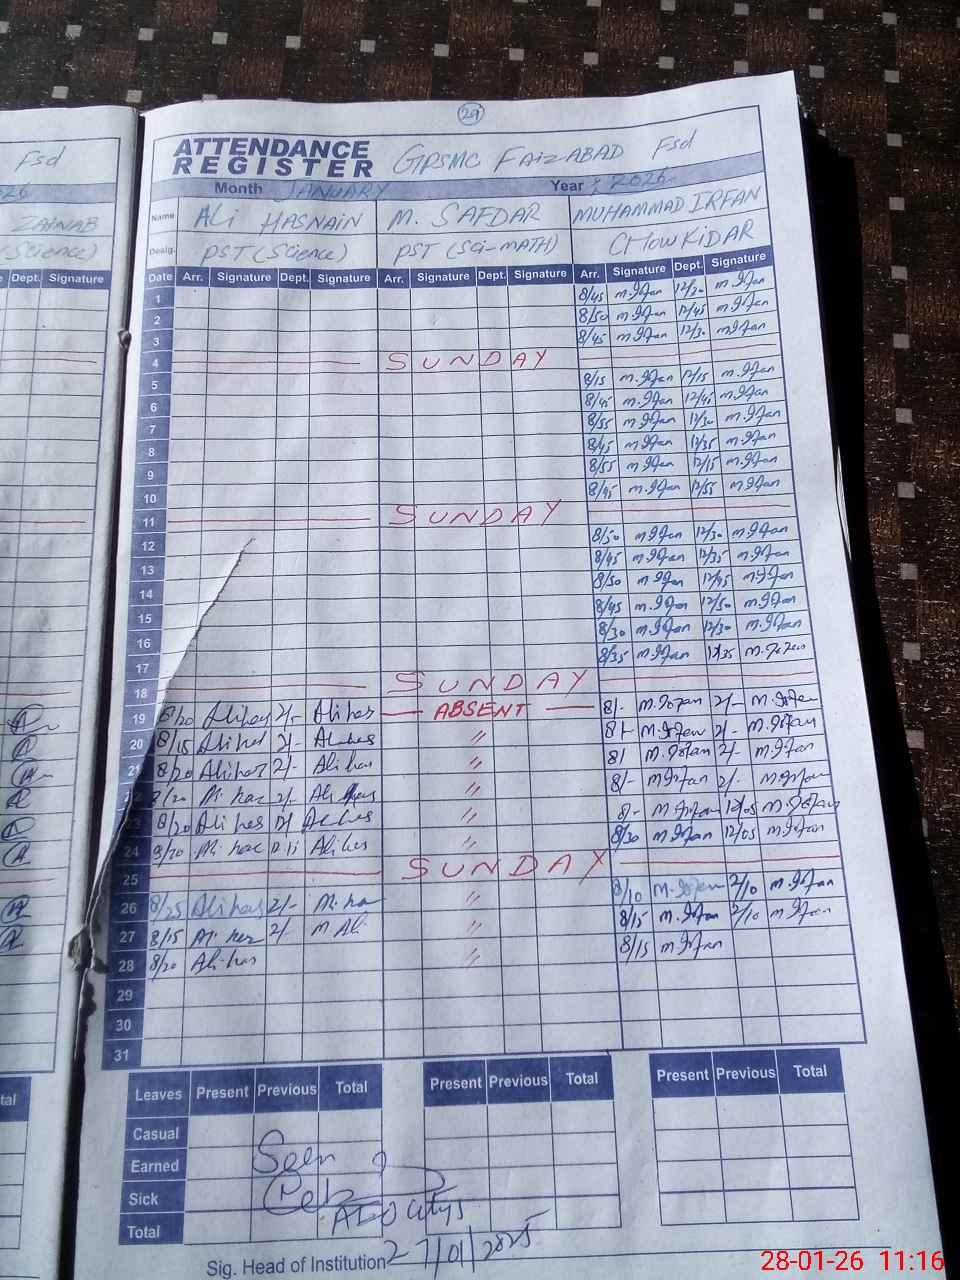 29
Fsd
ATTENDANCE REGISTER GPSMC FAIZABAD Fsd
Month JANUARY Year : 2026
Name ALI HASNAIN M. SAFDAR MUHAMMAD IRFAN
ZAINAB
Desig. PST (Science) PST (Sci-MATH) CHOWKIDAR
(Science)
Dept. Signature
Date Arr. Signature Dept. Signature Arr. Signature Dept. Signature Arr. Signature Dept. Signature
1 8/45 m.Irfan 12/30 m.Irfan
2 8/50 m.Irfan 12/45 m.Irfan
3 8/45 m.Irfan 12/30 m.Irfan
4 SUNDAY
5 8/15 m.Irfan 12/15 m.Irfan
6 8/45 m.Irfan 12/45 m.Irfan
7 8/55 m.Irfan 12/30 m.Irfan
8 8/45 m.Irfan 12/35 m.Irfan
9 8/55 m.Irfan 12/15 m.Irfan
10 8/45 m.Irfan 12/55 m.Irfan
11 SUNDAY
12 8/50 m.Irfan 12/30 m.Irfan
13 8/45 m.Irfan 12/35 m.Irfan
14 8/50 m.Irfan 12/45 m.Irfan
15 8/45 m.Irfan 12/50 m.Irfan
16 8/30 m.Irfan 12/30 m.Irfan
17 8/35 m.Irfan 12/35
18 SUNDAY
19 8/20 Ali has 2/- Ali has ABSENT 8/- M.Irfan 2/- M.Irfan
20 8/15 Ali has 2/- Ali has 〃 8/- M.Irfan 2/- M.Irfan
21 8/20 Ali has 2/- Ali has 〃 8/ M.Irfan 2/- M.Irfan
8/20 2/- Ali has 〃 8/- M.Irfan 2/- M.Irfan
23 8/20 Ali has 12/ 〃 8/- M.Irfan 12/05 M.Irfan
24 8/20 Ali has 〃 8/30 M.Irfan 12/05 M.Irfan
25 SUNDAY
26 8/25 Ali has 2/- 〃 8/10 M.Irfan 2/10 m.Irfan
27 8/15 2/ M Ali 〃 8/15 M.Irfan 2/10 m.Irfan
28 8/20 Ali has 〃 8/15 M.Irfan
29
30
31
Leaves Present Previous Total Present Previous Total Present Previous Total
Casual
Earned
Sick
Total
Seen
AEO
27/01/2025
Sig. Head of Institution
28-01-26 11:16